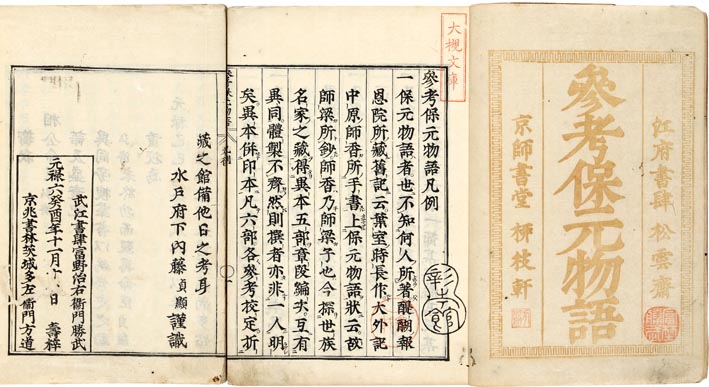 江府書肆 松雲齋
參考保元物語
京師書堂 柳枝軒
大槻文庫
參考保元物語凡例
一保元物語者世不知何人所著醍醐報
恩院所藏舊記云葉室時長作大外記
中原師香所手書上保元物語狀云故
師梁所鈔師香乃師梁子也今探世族
名家之藏得異本五部章段編次互有
異同體製不齊然則撰者亦非一人明
矣異本併印本凡六部各參考校定折
藏之館備他日之考耳
水戶府下內藤貞顯謹識
元祿六癸酉年十一月 日 壽梓
武江書肆富野治右衞門勝武
京兆書林茨城多左衞門方道